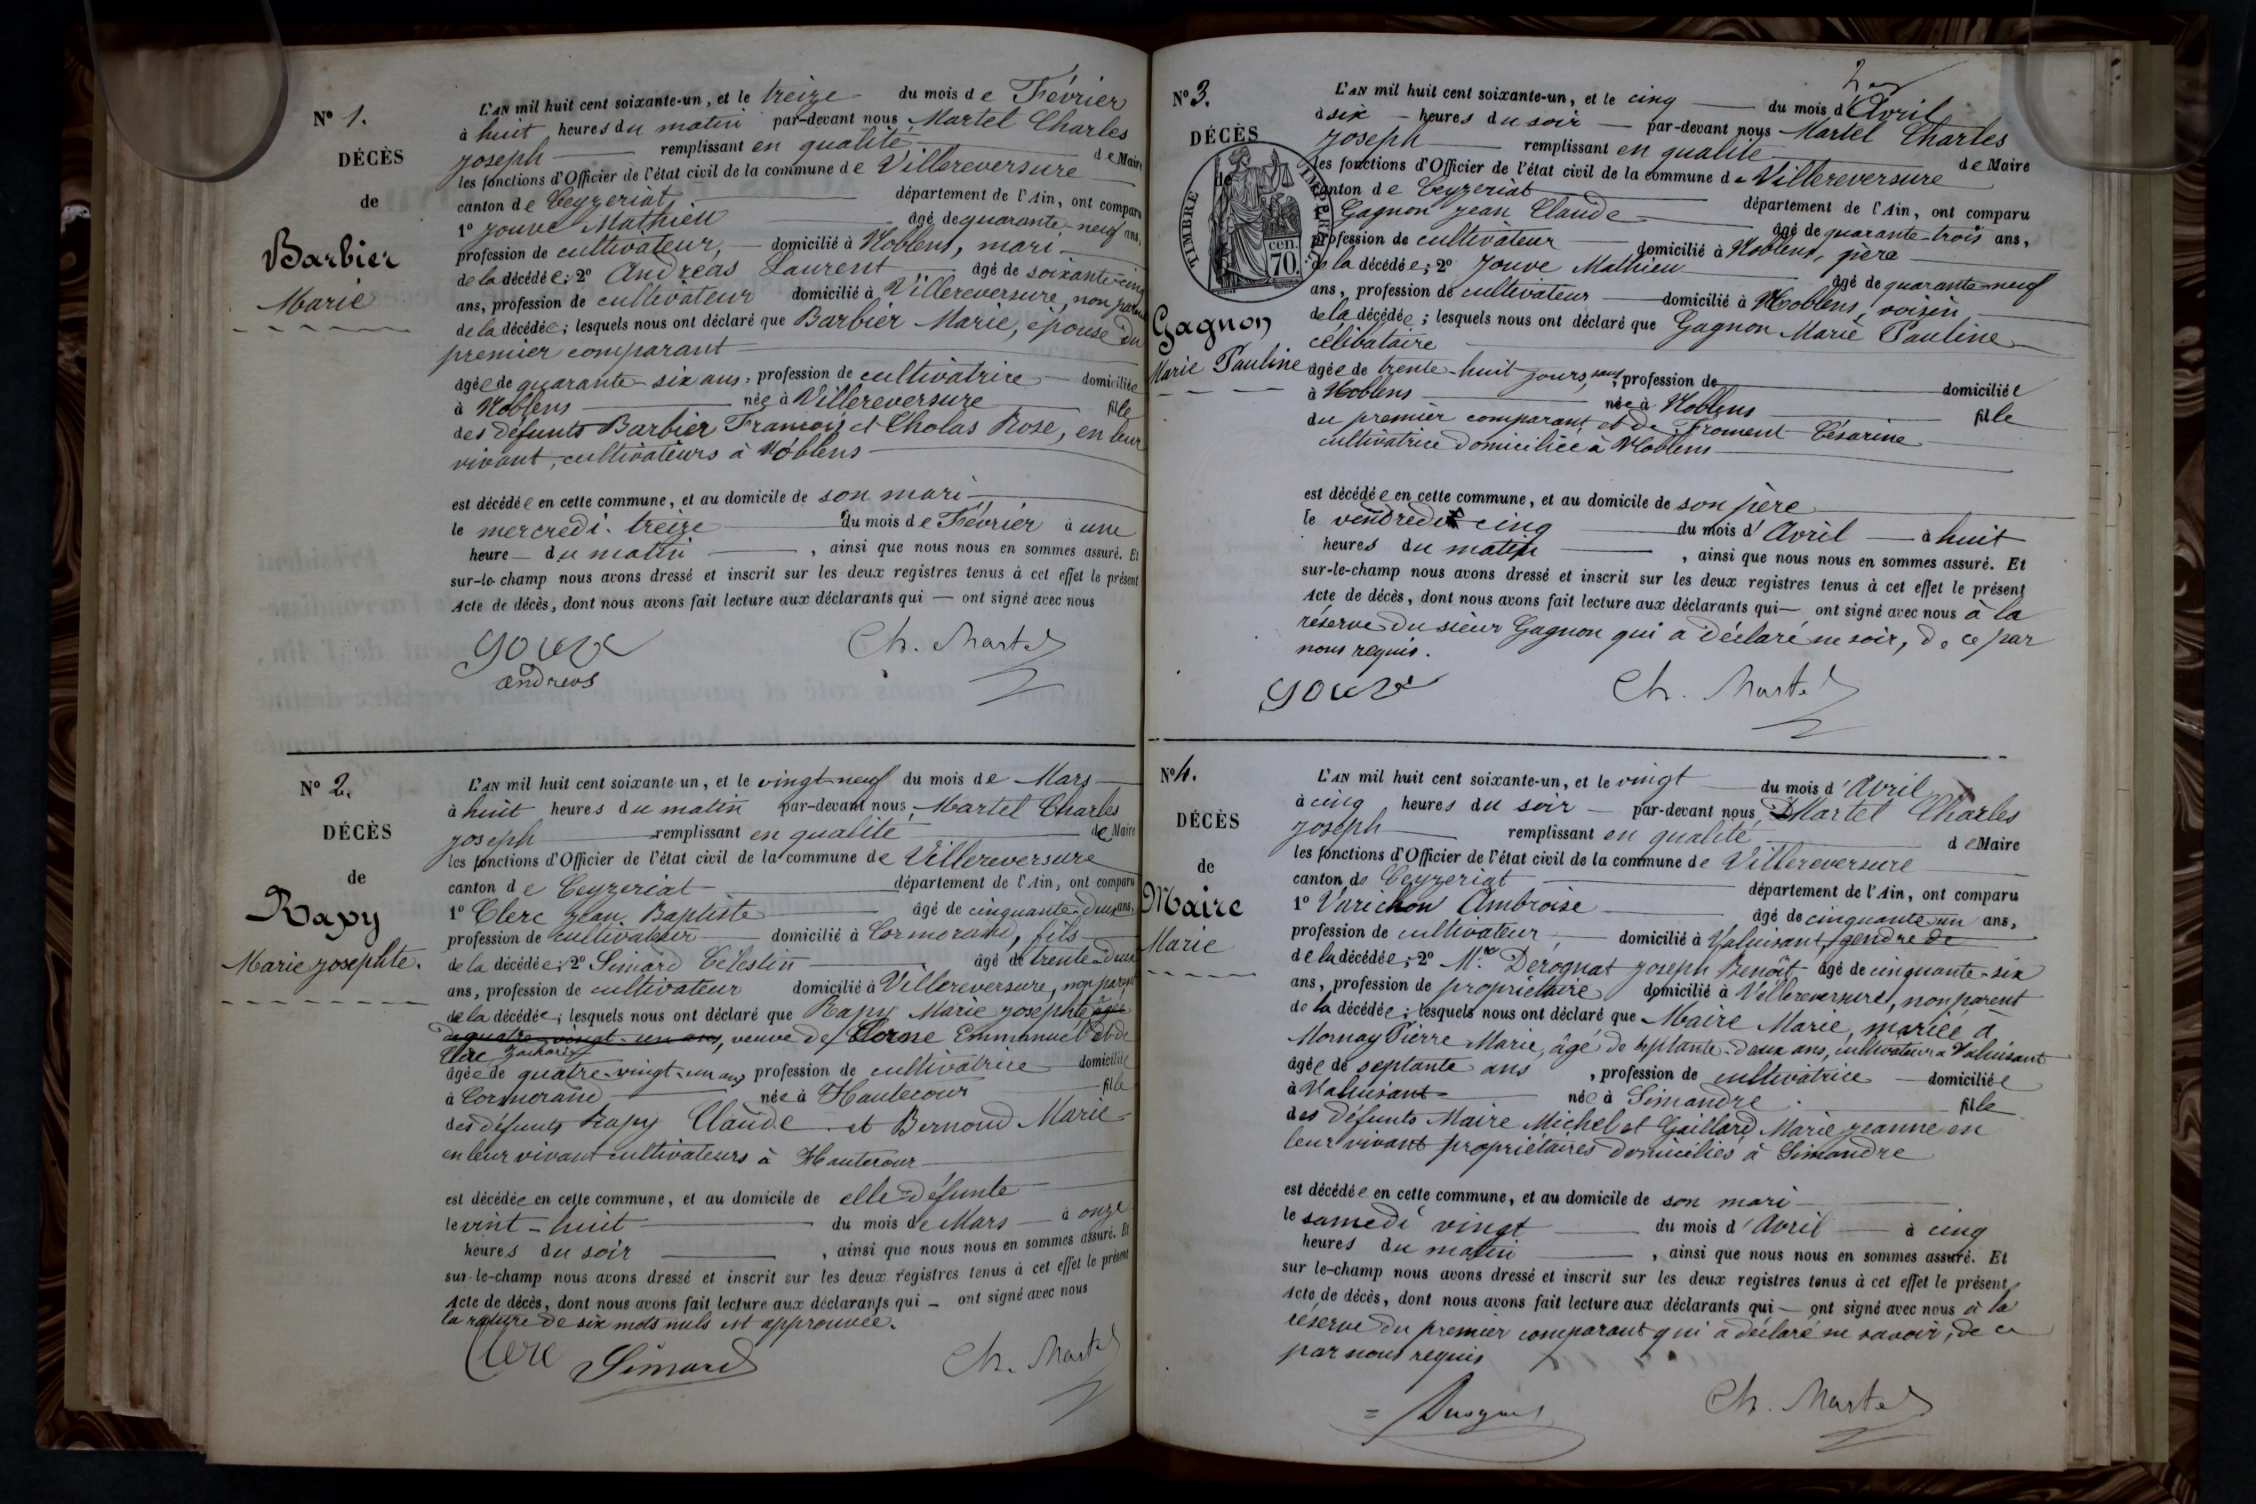 N° 1.
DÉCÈS
de
Barbier
Marie
L'AN mil huit cent soixante-un, et le treize du mois de Février
à huit heures du matin par-devant nous, Martel Charles
Joseph remplissant en qualité de Maire
les fonctions d'Officier de l'état civil de la commune de Villereversure
canton de Ceyzeriat, département de l'Ain, ont comparu
1° Jouve Mathieu âgé de quarante-neuf ans,
profession de cultivateur, domicilié à Noblens, mari
de la décédée; 2° Andréas Laurent âgé de soixante-cinq
ans, profession de cultivateur domicilié à Villereversure, non parent
de la décédée; lesquels nous ont déclaré que Barbier Marie, épouse du
premier comparant
âgée de quarante-six ans, profession de cultivatrice domiciliée
à Noblens née à Villereversure fille
des défunts Barbier François et Cholas Rose, en leur
vivant, cultivateurs à Noblens
est décédée en cette commune, et au domicile de son mari
le mercredi treize du mois de Février à une
heure du matin, ainsi que nous nous en sommes assuré. Et
sur-le-champ nous avons dressé et inscrit sur les deux registres tenus à cet effet le présent
Acte de décès, dont nous avons fait lecture aux déclarants qui — ont signé avec nous
Jouve Ch. Martel
andreas
N° 2.
DÉCÈS
de
Rapy
Marie Josephte.
L'AN mil huit cent soixante un, et le vingt-neuf du mois de Mars
à huit heures du matin par-devant nous, Martel Charles
Joseph remplissant en qualité de Maire
les fonctions d'Officier de l'état civil de la commune de Villereversure
canton de Ceyzeriat département de l'Ain, ont comparu
1° Clerc Jean Baptiste âgé de cinquante-deux ans,
profession de cultivateur domicilié à Cormorand, fils
de la décédée; 2° Simard Célestin âgé de trente-deux
ans, profession de cultivateur domicilié à Villereversure, non parent
de la décédée; lesquels nous ont déclaré que Rapy Marie Josephte âgée
de quatre-vingt-un ans, veuve de Emmanuel et de
Clerc Zacharie
âgée de quatre-vingt-un ans profession de cultivatrice domiciliée
à Cormorand née à Hautecour fille
des défunts Rapy Claude et Bernoud Marie
en leur vivant cultivateurs à Hautecour
est décédée en cette commune, et au domicile de elle-défunte
le vint-huit du mois de Mars à onze
heures du soir, ainsi que nous nous en sommes assuré. Et
sur-le-champ nous avons dressé et inscrit sur les deux registres tenus à cet effet le présent
Acte de décès, dont nous avons fait lecture aux déclarants qui — ont signé avec nous
la rature de six mots nuls est approuvée.
Clerc Simard Ch. Martel
N° 3.
DÉCÈS
de
TIMBRE IMPÉRIAL
70 cen.
Gagnon
Marie Pauline
L'AN mil huit cent soixante-un, et le cinq du mois d'Avril
à six heures du soir par-devant nous Martel Charles
Joseph remplissant en qualité de Maire
les fonctions d'Officier de l'état civil de la commune de Villereversure
canton de Ceyzeriat département de l'Ain, ont comparu
1° Gagnon Jean Claude âgé de quarante-trois ans,
profession de cultivateur domicilié à Noblens, père
de la décédée; 2° Jouve Mathieu âgé de quarante-neuf
ans, profession de cultivateur domicilié à Noblens, voisin
de la décédée; lesquels nous ont déclaré que Gagnon Marie Pauline
célibataire
âgée de trente-huit jours, sans profession de domiciliée
à Noblens née à Noblens fille
du premier comparant et de Froment Césarine
cultivatrice domiciliée à Noblens
est décédée en cette commune, et au domicile de son père
le vendredi cinq du mois d'Avril à huit
heures du matin, ainsi que nous nous en sommes assuré. Et
sur-le-champ nous avons dressé et inscrit sur les deux registres tenus à cet effet le présent
Acte de décès, dont nous avons fait lecture aux déclarants qui — ont signé avec nous à la
réserve du sieur Gagnon qui a déclaré ne soir, de ce par
nous requis.
Jouve Ch. Martel
N° 4.
DÉCÈS
de
Maire
Marie
L'AN mil huit cent soixante-un, et le vingt du mois d'Avril
à cinq heures du soir par-devant nous, Martel Charles
Joseph remplissant en qualité de Maire
les fonctions d'Officier de l'état civil de la commune de Villereversure
canton de Ceyzeriat département de l'Ain, ont comparu
1° Varichon Ambroise âgé de cinquante-un ans,
profession de cultivateur, domicilié à Valuisant, gendre de
de la décédée; 2° Mr. Derognat Joseph Benoît âgé de cinquante-six
ans, profession de propriétaire domicilié à Villereversure, non parent
de la décédée; lesquels nous ont déclaré que Maire Marie, mariée à
Mornay Pierre Marie, âgé de septante-deux ans, cultivateur à Valuisant
âgée de septante ans, profession de cultivatrice domiciliée
à Valuisant née à Simandre fille
des défunts Maire Michel et Gaillard Marie Jeanne en
leur vivant propriétaires domiciliés à Simandre
est décédée en cette commune, et au domicile de son mari
le samedi vingt du mois d'Avril à cinq
heures du matin, ainsi que nous nous en sommes assuré. Et
sur le-champ nous avons dressé et inscrit sur les deux registres tenus à cet effet le présent
Acte de décès, dont nous avons fait lecture aux déclarants qui — ont signé avec nous à la
réserve du premier comparant qui a déclaré ne savoir, de ce
par nous requis
Ch. Martel